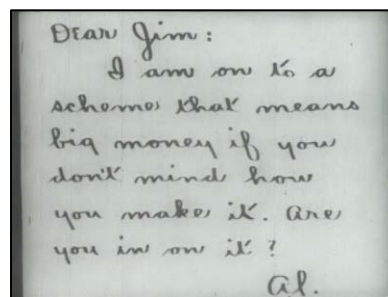 Dear Jim:
I am on to a
scheme that means
big money if you
don't mind how
you make it. Are
you in on it?
Al.